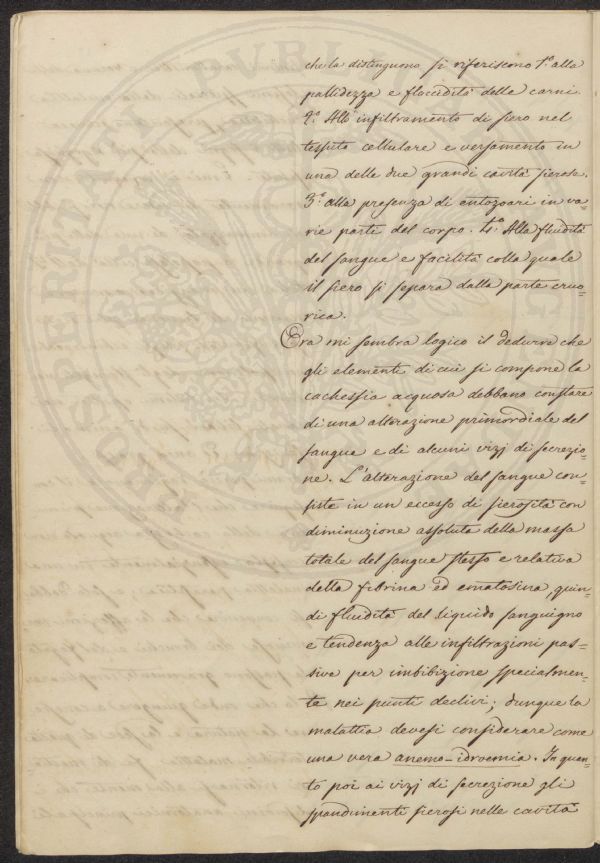 che la distinguono si riferiscono 1.° alla
pallidezza e flaccidità delle carni.
2.° All' infiltramento di siero nel
tessuto cellulare e versamento in
una delle due grandi cavità sierose.
3.° alla presenza di entozoari in va-
rie parti del corpo. 4.° Alla fluidità
del sangue e facilità colla quale
il siero si separa dalla parte cruo-
rica.
Ora mi sembra logico il dedurre che
gli elementi di cui si compone la
cachessia acquosa debbano constare
di una alterazione primordiale del
sangue e di alcuni vizj di secrezio-
ne. L'alterazione del sangue con-
siste in un eccesso di sierosità con
diminuzione assoluta della massa
totale del sangue stesso e relativa
della fibrina ed ematosina, quin-
di fluidità del liquido sanguigno
e tendenza alle infiltrazioni pas-
sive per imbibizione specialmen-
te nei punti declivi; dunque la
malattia devesi considerare come
una vera anemo-idroemia. In quan-
to poi ai vizj di secrezione gli
spandimenti sierosi nelle cavità